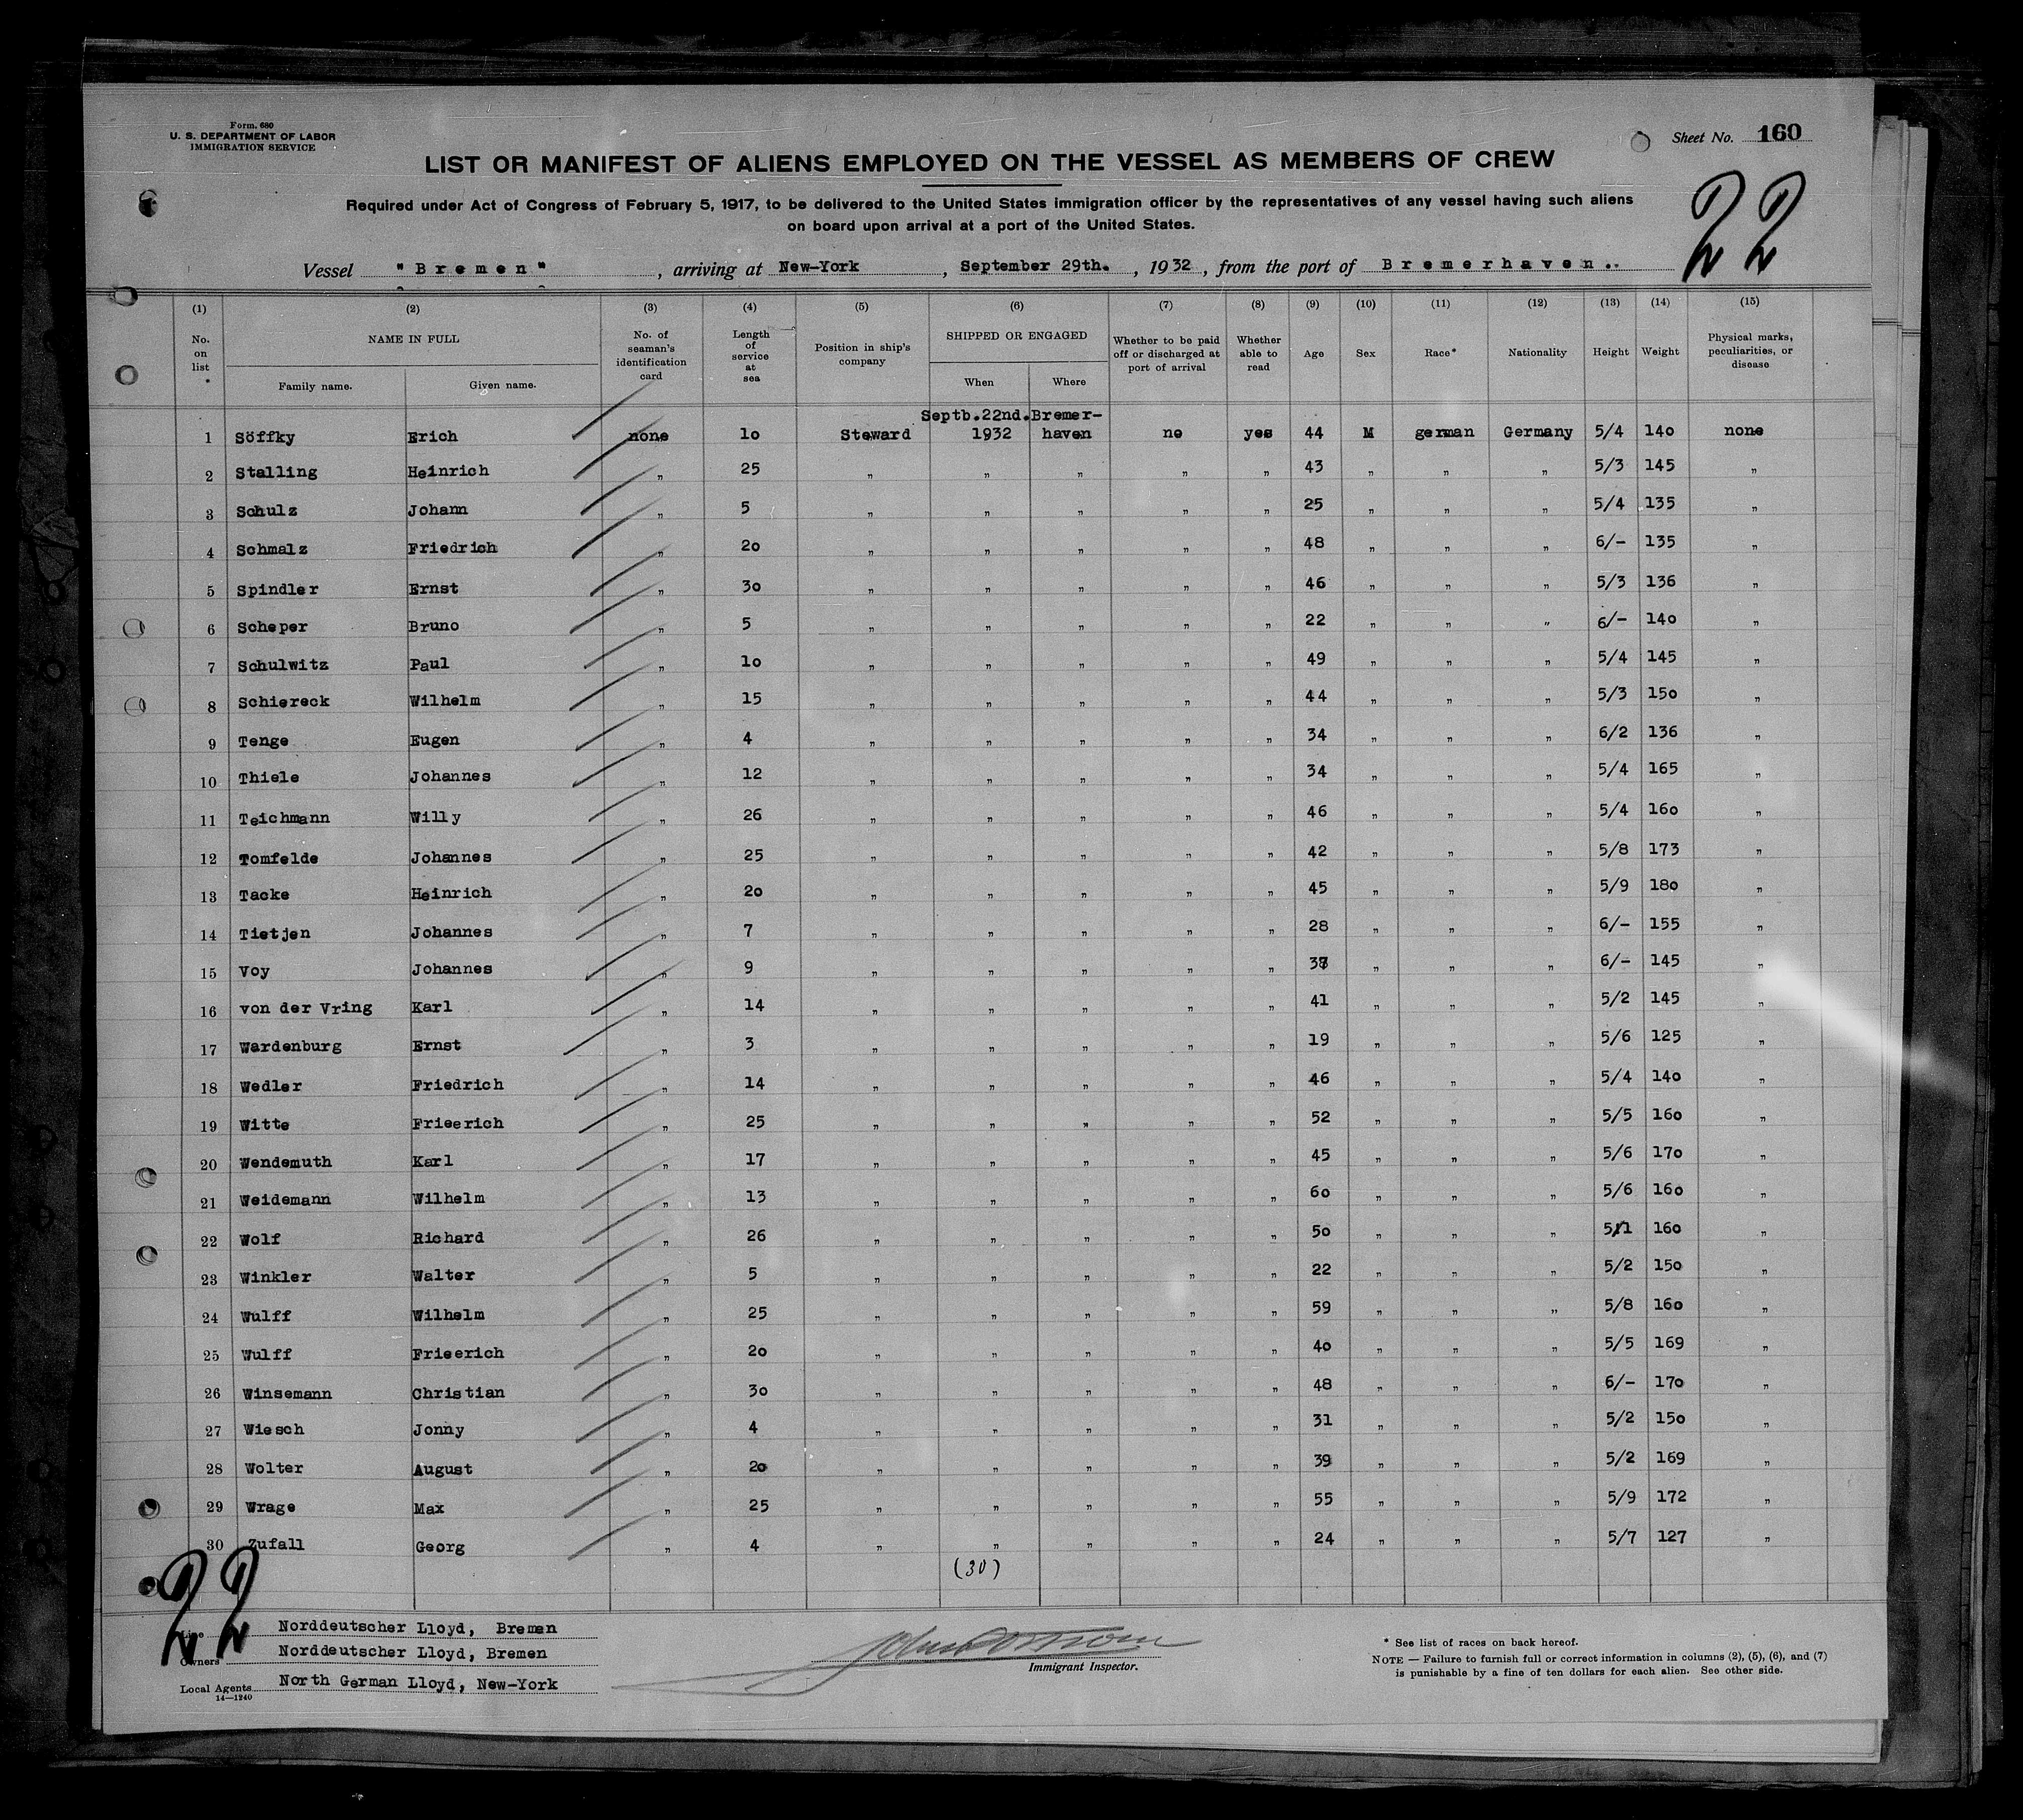 Form. 680
U. S. DEPARTMENT OF LABOR
IMMIGRATION SERVICE
Sheet No. 160
LIST OR MANIFEST OF ALIENS EMPLOYED ON THE VESSEL AS MEMBERS OF CREW
22
Required under Act of Congress of February 5, 1917, to be delivered to the United States immigration officer by the representatives of any vessel having such aliens
on board upon arrival at a port of the United States.
Vessel "Bremen", arriving at New-York, September 29th., 1932, from the port of Bremerhaven..
(1) (2) (3) (4) (5) (6) (7) (8) (9) (10) (11) (12) (13) (14) (15)
No. on list * NAME IN FULL Family name. Given name. No. of seaman's identification card Length of service at sea Position in ship's company SHIPPED OR ENGAGED When Where Whether to be paid off or discharged at port of arrival Whether able to read Age Sex Race* Nationality Height Weight Physical marks, peculiarities, or disease
Septb.22nd. Bremer-
1 Söffky Erich none 1o Steward 1932 haven no yes 44 M german Germany 5/4 14o none
2 Stalling Heinrich " 25 " " " " " 43 " " " 5/3 145 "
3 Schulz Johann " 5 " " " " " 25 " " " 5/4 135 "
4 Schmalz Friedrich " 2o " " " " " 48 " " " 6/- 135 "
5 Spindler Ernst " 3o " " " " " 46 " " " 5/3 136 "
6 Scheper Bruno " 5 " " " " " 22 " " " 6/- 14o "
7 Schulwitz Paul " 1o " " " " " 49 " " " 5/4 145 "
8 Schiereck Wilhelm " 15 " " " " " 44 " " " 5/3 15o "
9 Tenge Eugen " 4 " " " " " 34 " " " 6/2 136 "
10 Thiele Johannes " 12 " " " " " 34 " " " 5/4 165 "
11 Teichmann Willy " 26 " " " " " 46 " " " 5/4 16o "
12 Tomfelde Johannes " 25 " " " " " 42 " " " 5/8 173 "
13 Tacke Heinrich " 2o " " " " " 45 " " " 5/9 18o "
14 Tietjen Johannes " 7 " " " " " 28 " " " 6/- 155 "
15 Voy Johannes " 9 " " " " " " " " 6/- 145 "
16 von der Vring Karl " 14 " " " " " 41 " " " 5/2 145 "
17 Wardenburg Ernst " 3 " " " " " 19 " " " 5/6 125 "
18 Wedler Friedrich " 14 " " " " " 46 " " " 5/4 14o "
19 Witte Frieerich " 25 " " " " " 52 " " " 5/5 16o "
20 Wendemuth Karl " 17 " " " " " 45 " " " 5/6 17o "
21 Weidemann Wilhelm " 13 " " " " " 6o " " " 5/6 16o "
22 Wolf Richard " 26 " " " " " 5o " " " 5/1 16o "
23 Winkler Walter " 5 " " " " " 22 " " " 5/2 15o "
24 Wulff Wilhelm " 25 " " " " " 59 " " " 5/8 16o "
25 Wulff Frieerich " 2o " " " " " 4o " " " 5/5 169 "
26 Winsemann Christian " 3o " " " " " 48 " " " 6/- 17o "
27 Wiesch Jonny " 4 " " " " " 31 " " " 5/2 15o "
28 Wolter August " 2o " " " " " 39 " " " 5/2 169 "
29 Wrage Max " 25 " " " " " 55 " " " 5/9 172 "
30 Zufall Georg " 4 " " " " " 24 " " " 5/7 127 "
(30)
22
Line Norddeutscher Lloyd, Bremen
Owners Norddeutscher Lloyd, Bremen
Local Agents North German Lloyd, New-York
14—1240
Immigrant Inspector.
* See list of races on back hereof.
NOTE — Failure to furnish full or correct information in columns (2), (5), (6), and (7)
is punishable by a fine of ten dollars for each alien. See other side.